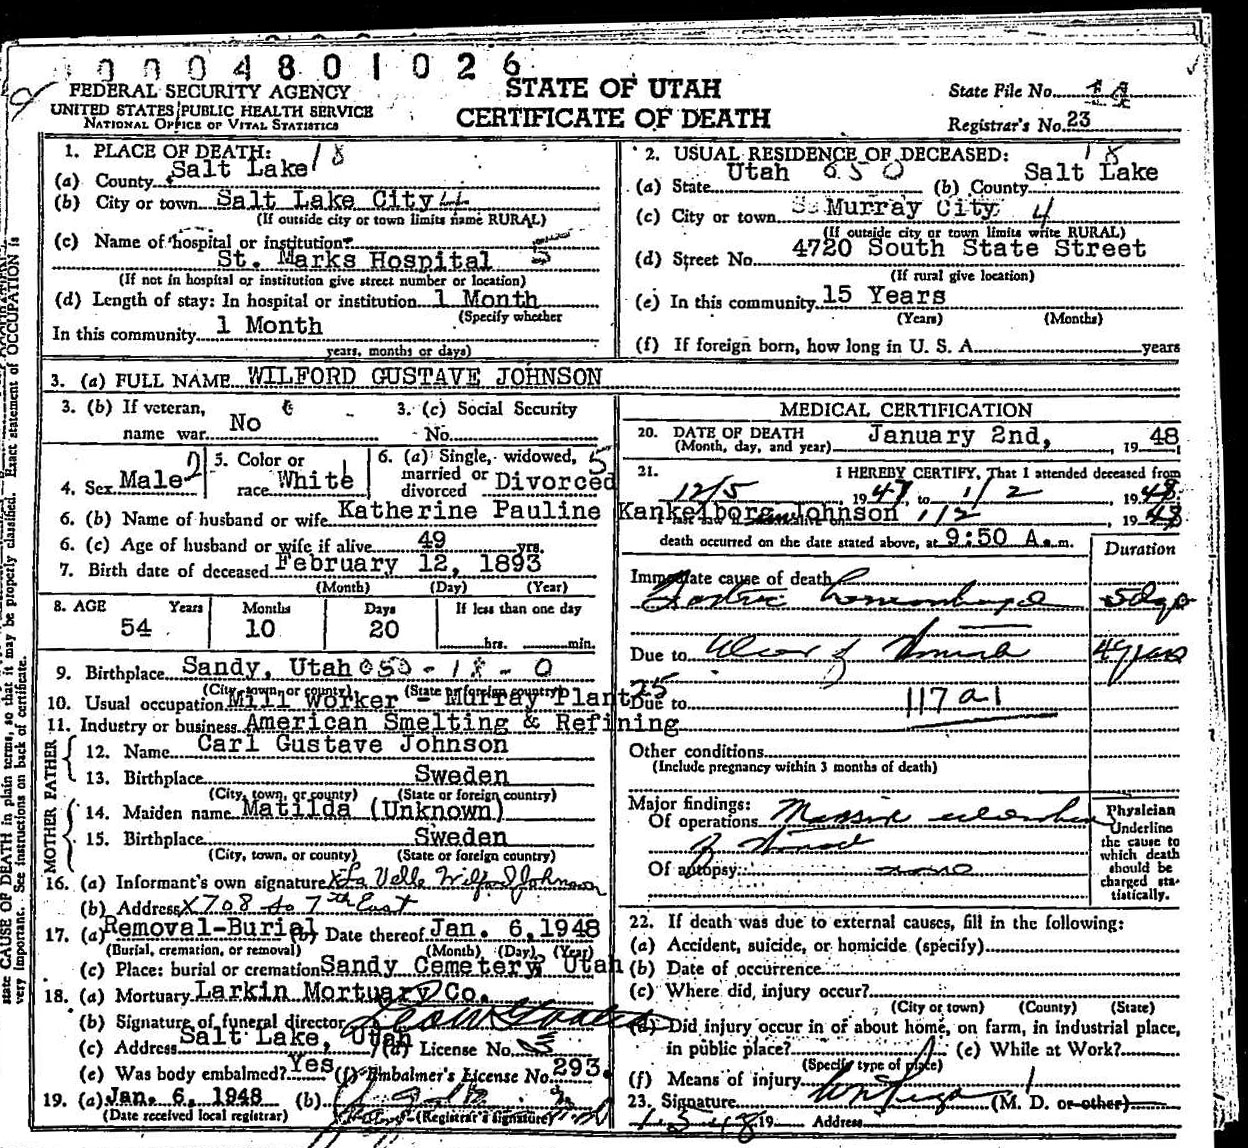 0 0 0 4 8 0 1 0 2 6
FEDERAL SECURITY AGENCY
UNITED STATES PUBLIC HEALTH SERVICE
NATIONAL OFFICE OF VITAL STATISTICS
STATE OF UTAH
CERTIFICATE OF DEATH
State File No.
Registrar's No. 23
1. PLACE OF DEATH: 18
(a) County Salt Lake
(b) City or town Salt Lake City 4
(If outside city or town limits name RURAL)
(c) Name of hospital or institution:
St. Marks Hospital 5
(If not in hospital or institution give street number or location)
(d) Length of stay: In hospital or institution 1 Month
(Specify whether
In this community 1 Month
years, months or days)
2. USUAL RESIDENCE OF DECEASED: 18
(a) State Utah 050 (b) County Salt Lake
(c) City or town Murray City 4
(If outside city or town limits write RURAL)
(d) Street No. 4720 South State Street
(If rural give location)
(e) In this community 15 Years
(Years) (Months)
(f) If foreign born, how long in U. S. A. years
3. (a) FULL NAME WILFORD GUSTAVE JOHNSON
3. (b) If veteran, name war No
3. (c) Social Security No.
4. Sex Male
5. Color or race White
6. (a) Single, widowed, married or divorced Divorced 5
6. (b) Name of husband or wife Katherine Pauline Kankelborg Johnson
6. (c) Age of husband or wife if alive 49 yrs.
7. Birth date of deceased February 12, 1893
(Month) (Day) (Year)
8. AGE Years Months Days If less than one day
54 10 20 hrs. min.
9. Birthplace Sandy, Utah 050-18-0
(City, town, or county) (State or foreign country)
10. Usual occupation Mill Worker - Murray Plant
11. Industry or business American Smelting & Refining
FATHER
12. Name Carl Gustave Johnson
13. Birthplace Sweden
(City, town, or county) (State or foreign country)
MOTHER
14. Maiden name Matilda (Unknown)
15. Birthplace Sweden
(City, town, or county) (State or foreign country)
16. (a) Informant's own signature X La Velle Wilford Johnson
(b) Address X 708 So 7th East
17. (a) Removal-Burial (b) Date thereof Jan. 6, 1948
(Burial, cremation, or removal) (Month) (Day) (Year)
(c) Place: burial or cremation Sandy Cemetery, Utah
18. (a) Mortuary Larkin Mortuary Co.
(b) Signature of funeral director
(c) Address Salt Lake, Utah (d) License No.
(e) Was body embalmed? Yes (f) Embalmer's License No. 293.
19. (a) Jan. 6, 1948 (b)
(Date received local registrar) (Registrar's signature)
MEDICAL CERTIFICATION
20. DATE OF DEATH January 2nd, 1948
(Month, day, and year)
21. I HEREBY CERTIFY, That I attended deceased from
12/5 1947 to 1/2 1948
1/2, 1948
death occurred on the date stated above, at 9:50 A.m.
Duration
Immediate cause of death
Gastric hemorrhage 5 days
Due to Ulcer of Stomach 4 years
25 Due to 117a1
Other conditions
(Include pregnancy within 3 months of death)
Major findings:
Of operations Massive
of Stomach
Of autopsy: none
Physician
Underline
the cause to
which death
should be
charged sta-
tistically.
22. If death was due to external causes, fill in the following:
(a) Accident, suicide, or homicide (specify)
(b) Date of occurrence
(c) Where did injury occur?
(City or town) (County) (State)
(d) Did injury occur in or about home, on farm, in industrial place,
in public place? (e) While at Work?
(Specify type of place)
(f) Means of injury
23. Signature (M. D. or other)
1-5-48 19 Address
state CAUSE OF DEATH in plain terms, so that it may be properly classified. Exact statement of OCCUPATION is
very important. See instructions on back of certificate.